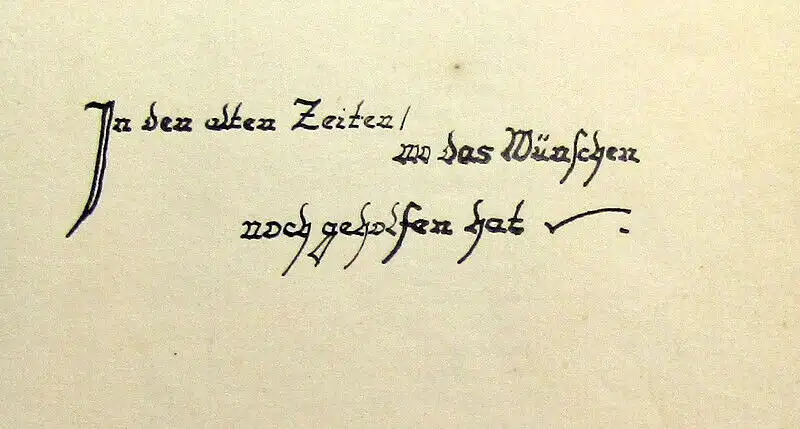 In den alten Zeiten/
wo das Wünschen
noch geholfen hat